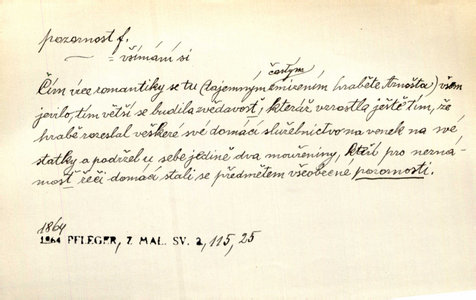 pozornost f.
všímání si
častým
Čím více romantiky se tu (tajemným mizením hraběte Arnošta) všem
jevilo, tím větší se budila zvědavosť, kteráž vzrostla ještě tím, že
hrabě rozeslal veškeré své domácí služebnictvo na venek na své
statky a podržel u sebe jedině dva mouřeníny, kteří pro nezná-
most řeči domácí stali se předmětem všeobecné pozornosti.
1864
1864 PFLEGER, Z MAL. SV. 2, 115, 25